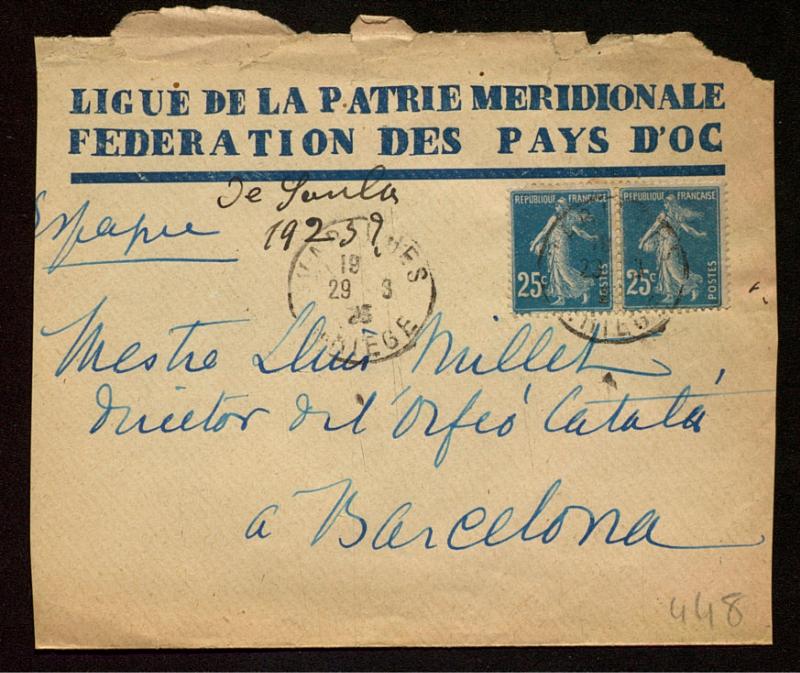 LIGUE DE LA PATRIE MERIDIONALE
FEDERATION DES PAYS D'OC
De Soula
1925?
Espagne
REPUBLIQUE FRANÇAISE
25c
POSTES
REPUBLIQUE FRANÇAISE
25c
POSTES
19
29 3
ARIEGE
Mestre Lluis Millet,
director de l'Orfeó Català
a Barcelona
448